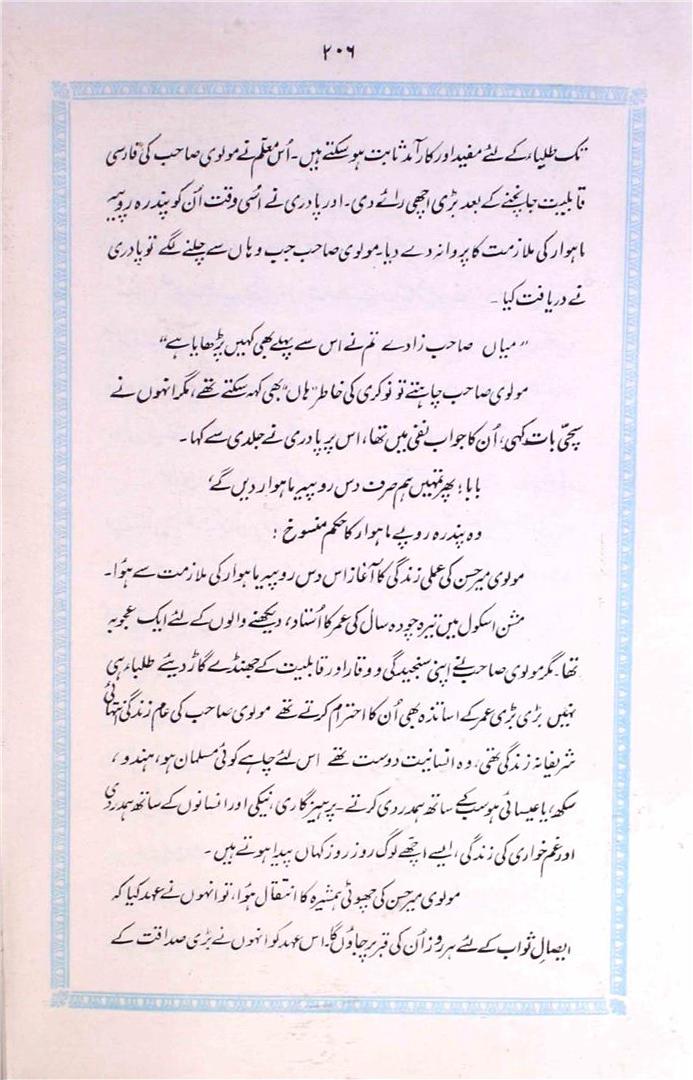 ۲۰۶
تک طلباء کے لئے مفید اور کارآمد ثابت ہو سکتے ہیں۔ اُس معلّم نے مولوی صاحب کی فارسی
قابلیت جانچنے کے بعد بڑی اچھی رائے دی۔ اور پادری نے اُسی وقت اُن کو پندرہ روپیہ
ماہوار کی ملازمت کا پروانہ دے دیا۔ مولوی صاحب جب وہاں سے چلنے لگے تو پادری
نے دریافت کیا۔
”میاں صاحب زادے تم نے اس سے پہلے بھی کہیں پڑھایا ہے“
مولوی صاحب چاہتے تو نوکری کی خاطر ”ہاں“ بھی کہہ سکتے تھے، مگر انہوں نے
سچی بات کہی، اُن کا جواب نفی میں تھا، اس پر پادری نے جلدی سے کہا۔
بابا؛ پھر تمہیں ہم صرف دس روپیہ ماہوار دیں گے‘
وہ پندرہ روپے ماہوار کا حکم منسوخ ؛
مولوی میر حسن کی عملی زندگی کا آغاز اس دس روپیہ ماہوار کی ملازمت سے ہُوا۔
مشن اسکول میں تیرہ چودہ سال کی عمر کا اُستاد، دیکھنے والوں کے لئے ایک عجوبہ
تھا۔ مگر مولوی صاحب نے اپنی سنجیدگی و وقار اور قابلیت کے جھنڈے گاڑ دیئے طلباء ہی
نہیں بڑی بڑی عمر کے اساتذہ بھی اُن کا احترام کرتے تھے مولوی صاحب کی عام زندگی انتہائی
شریفانہ زندگی تھی، وہ انسانیت دوست تھے اس لئے چاہے کوئی مسلمان ہو، ہندو،
سکھ، یا عیسائی ہو سب کے ساتھ ہمدردی کرتے۔ پرہیزگاری، نیکی اور انسانوں کے ساتھ ہمدردی
اور غم خواری کی زندگی، ایسے اچھے لوگ روز روز کہاں پیدا ہوتے ہیں۔
مولوی میر حسن کی چھوٹی ہمشیرہ کا انتقال ہُوا، تو انہوں نے عہد کیا کہ
ایصالِ ثواب کے لئے ہر روز اُن کی قبر پر جاؤں گا۔ اس عہد کو انہوں نے بڑی صداقت کے